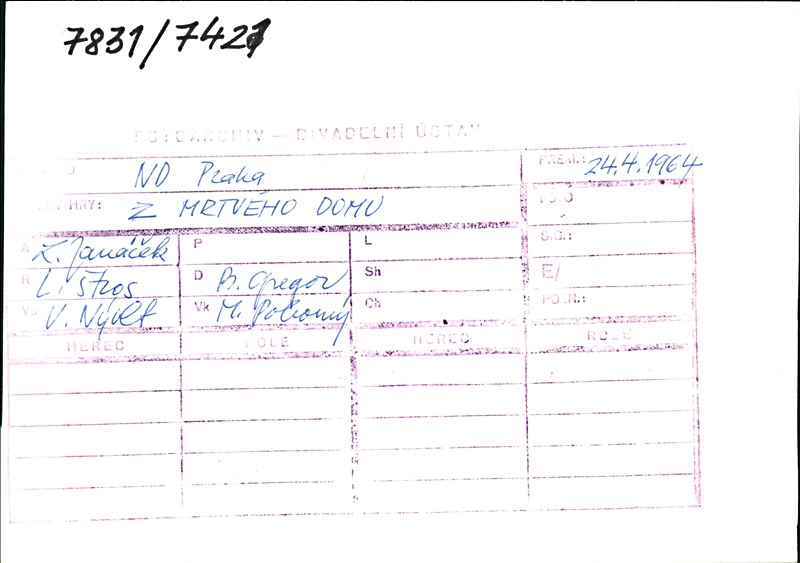 7831/7421
FOTOARCHIV — DIVADELNÍ ÚSTAV
ND Praha PREM.: 24.4.1964
HRY: Z MRTVÉHO DOMU
A L. Janáček P L S.G.:
R L. Štros D B. Gregor Sh E/
V. Nývlt Vk M. Pokorný Ch PO.N.:
HEREC ROLE HEREC ROLE